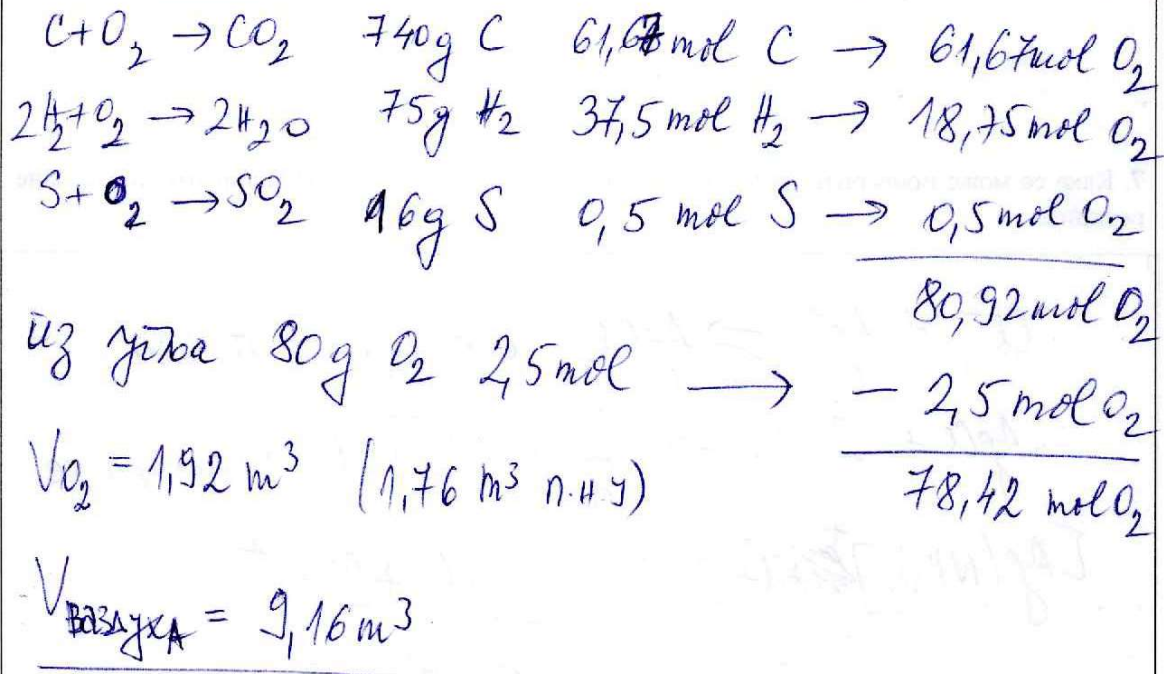 C+O₂ → CO₂ 740g C 61,67mol C → 61,67mol O₂
2H₂+O₂ → 2H₂O 75g H₂ 37,5mol H₂ → 18,75mol O₂
S+O₂ → SO₂ 16g S 0,5 mol S → 0,5mol O₂
80,92mol O₂
из угља 80g O₂ 2,5mol → − 2,5molO₂
VO₂ = 1,92 m³ (1,76 m³ п.н.у)
78,42 molO₂
Vваздуха = 9,16m³